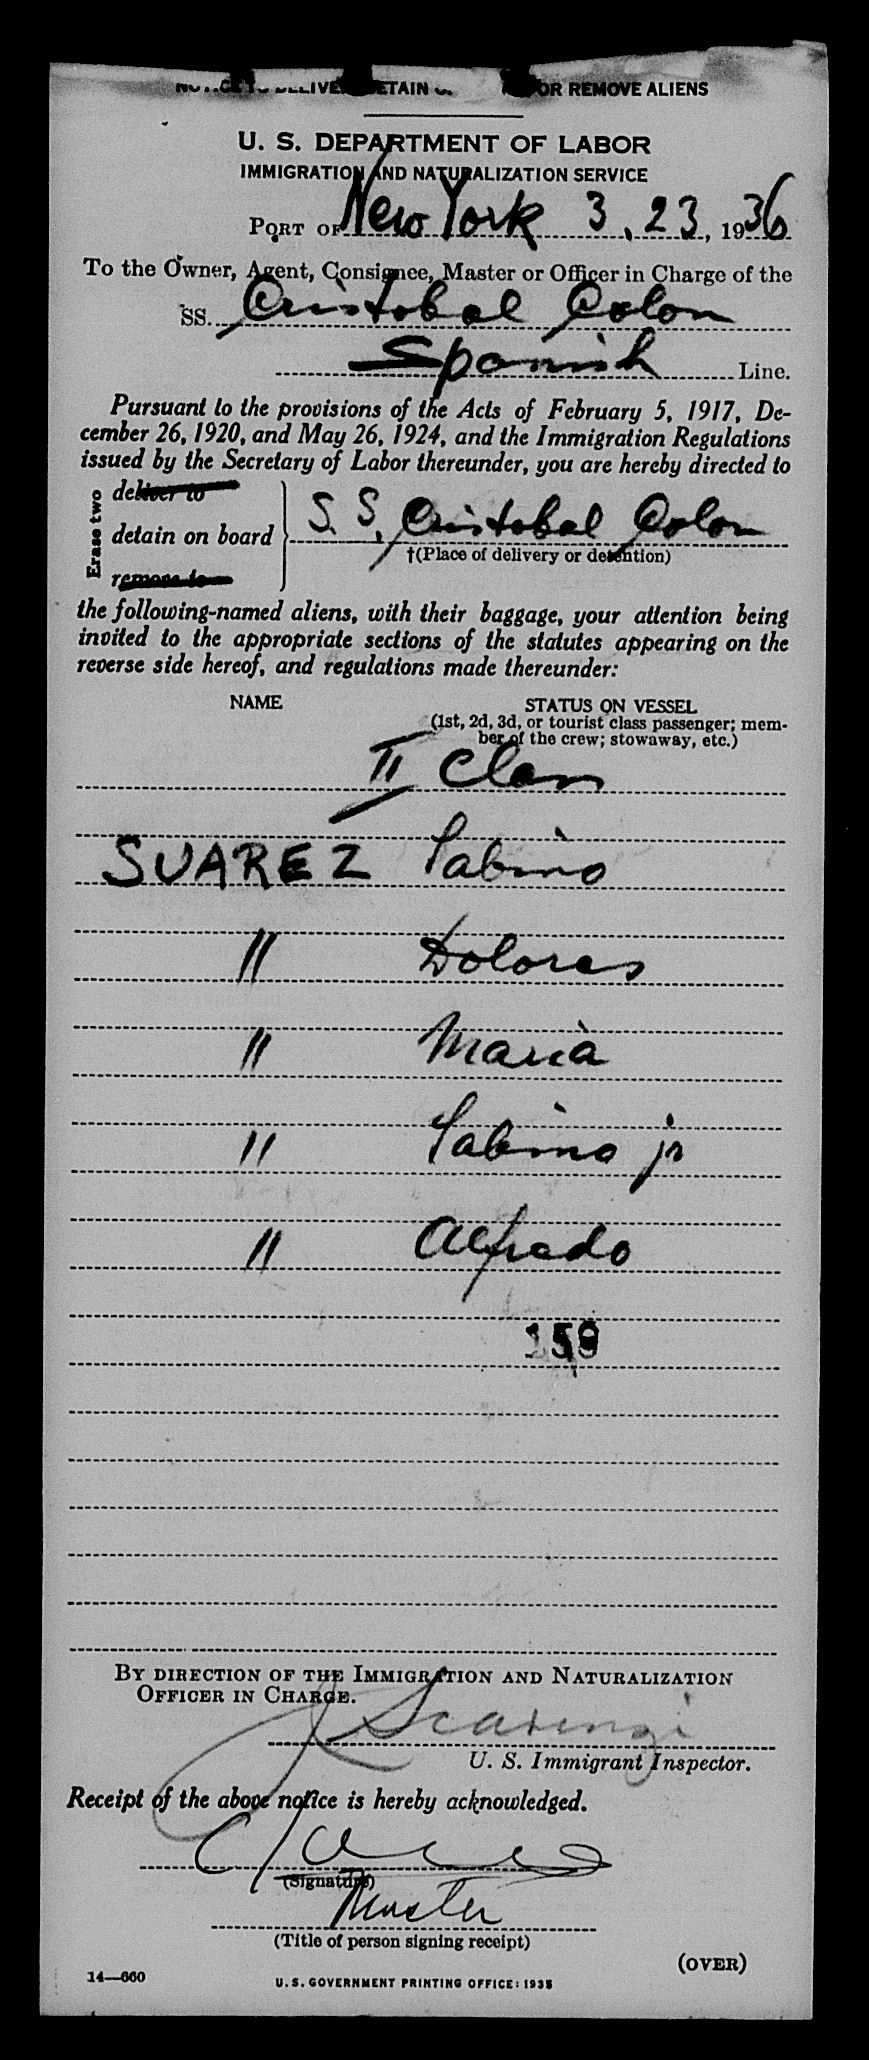 DELIVER DETAIN OR REMOVE ALIENS
U. S. DEPARTMENT OF LABOR
IMMIGRATION AND NATURALIZATION SERVICE
PORT OF New York 3, 23, 1936
To the Owner, Agent, Consignee, Master or Officer in Charge of the
SS. Cristobal Colon
Spanish Line.
Pursuant to the provisions of the Acts of February 5, 1917, De-
cember 26, 1920, and May 26, 1924, and the Immigration Regulations
issued by the Secretary of Labor thereunder, you are hereby directed to
Erase two
deliver to
detain on board
remove to
S. S. Cristobal Colon
†(Place of delivery or detention)
the following-named aliens, with their baggage, your attention being
invited to the appropriate sections of the statutes appearing on the
reverse side hereof, and regulations made thereunder:
NAME STATUS ON VESSEL
(1st, 2d, 3d, or tourist class passenger; mem-
ber of the crew; stowaway, etc.)
II Class
SUAREZ Sabino
" Dolores
" Maria
" Sabino jr
" Alfredo
159
BY DIRECTION OF THE IMMIGRATION AND NATURALIZATION
OFFICER IN CHARGE.
J Scarenzi
U. S. Immigrant Inspector.
Receipt of the above notice is hereby acknowledged.
(Signature)
Master
(Title of person signing receipt)
(OVER)
14—660 U. S. GOVERNMENT PRINTING OFFICE: 1935